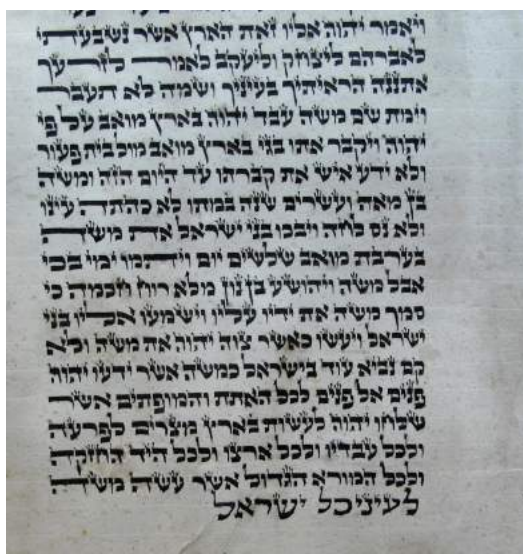 ויאמר יהוה אליו זאת הארץ אשר נשבעתי
לאברהם ליצחק וליעקב לאמר לזרעך
אתננה הראיתיך בעיניך ושמה לא תעבר
וימת שם משה עבד יהוה בארץ מואב על פי
יהוה ויקבר אתו בגי בארץ מואב מול בית פעור
ולא ידע איש את קברתו עד היום הזה ומשה
בן מאה ועשרים שנה במתו לא כהתה עינו
ולא נס לחה ויבכו בני ישראל את משה
בערבת מואב שלשים יום ויתמו ימי בכי
אבל משה ויהושע בן נון מלא רוח חכמה כי
סמך משה את ידיו עליו וישמעו אליו בני
ישראל ויעשו כאשר צוה יהוה את משה ולא
קם נביא עוד בישראל כמשה אשר ידעו יהוה
פנים אל פנים לכל האתת והמופתים אשר
שלחו יהוה לעשות בארץ מצרים לפרעה
ולכל עבדיו ולכל ארצו ולכל היד החזקה
ולכל המורא הגדול אשר עשה משה
לעיני כל ישראל